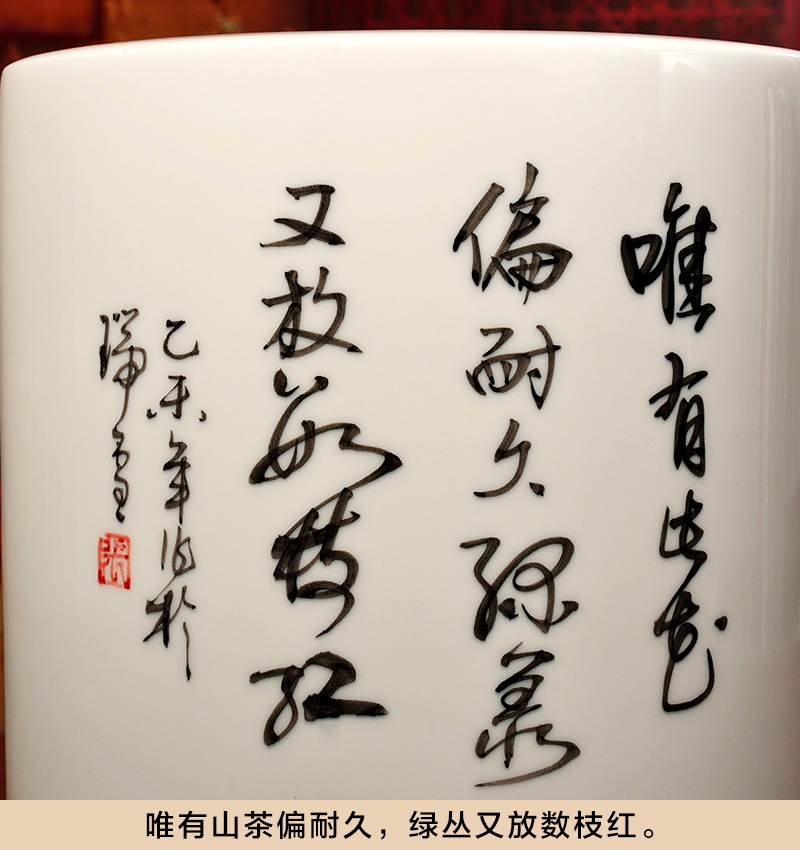 唯有山茶
偏耐久綠叢
又放數枝紅
乙未年作於
唯有山茶偏耐久，绿丛又放数枝红。